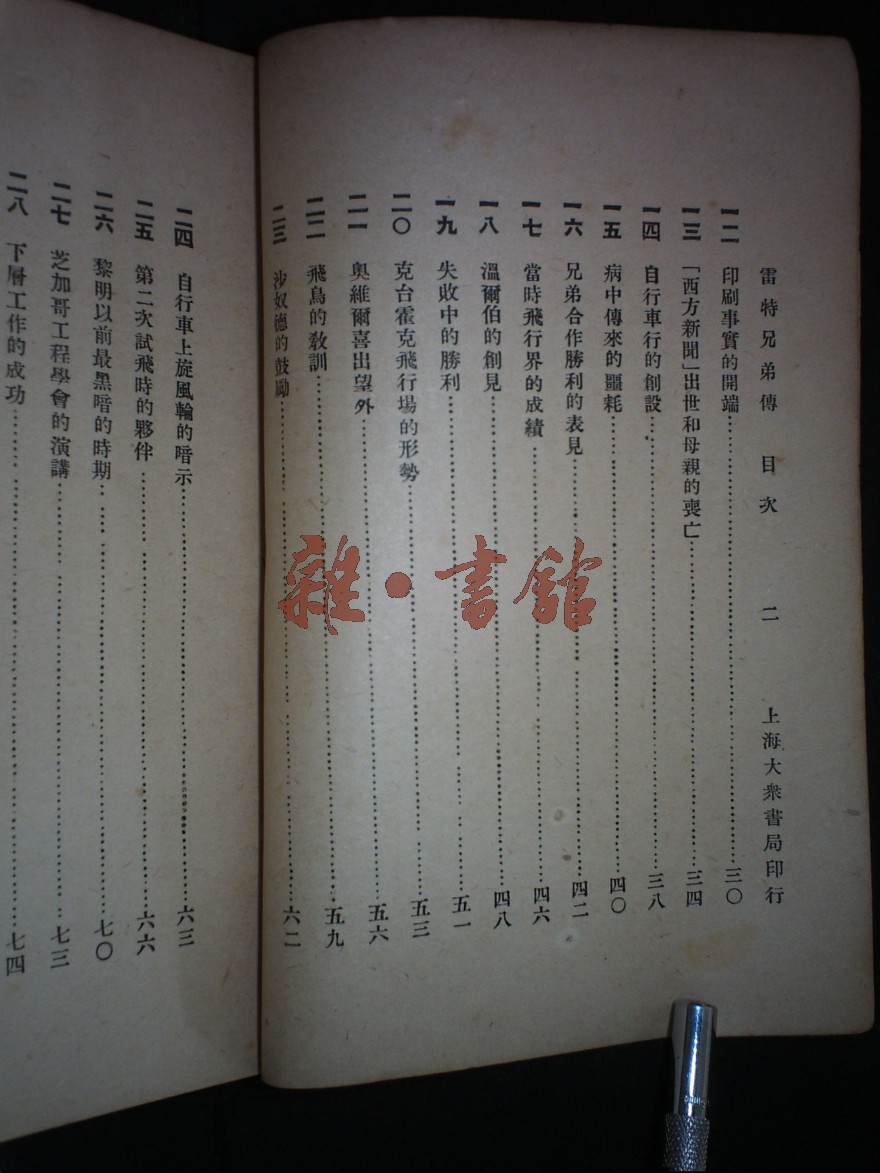 雷特兄弟傳 目次 二 上海大衆書局印行
一二 印刷事實的開端 三〇
一三 「西方新聞」出世和母親的喪亡 三四
一四 自行車行的創設 三八
一五 病中傳來的噩耗 四〇
一六 兄弟合作勝利的表見 四二
一七 當時飛行界的成績 四六
一八 溫爾伯的創見 四八
一九 失敗中的勝利 五一
二〇 克台霍克飛行場的形勢 五三
二一 奧維爾喜出望外 五六
二二 飛鳥的教訓 五九
二三 沙奴德的鼓勵 六二
二四 自行車上旋風輪的暗示 六三
二五 第二次試飛時的夥伴 六六
二六 黎明以前最黑暗的時期 七〇
二七 芝加哥工程學會的演講 七三
二八 下層工作的成功 七四
雜·書館